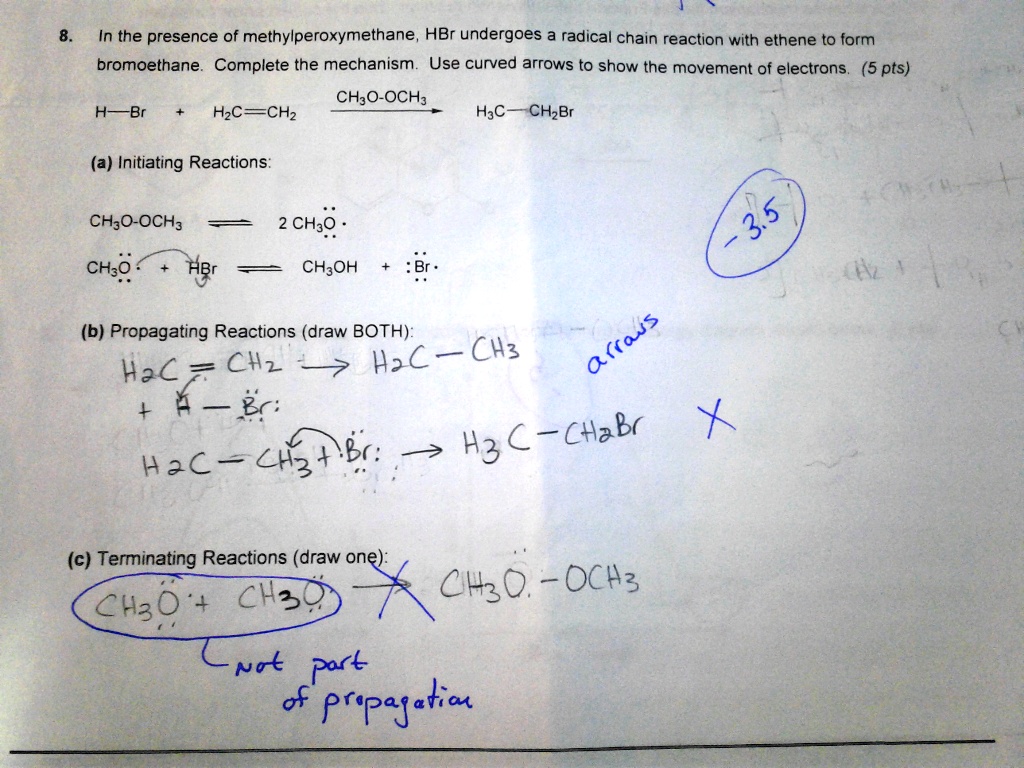 8. In the presence of methylperoxymethane, HBr undergoes a radical chain reaction with ethene to form
bromoethane. Complete the mechanism. Use curved arrows to show the movement of electrons. (5 pts)
CH₃O-OCH₃
H—Br + H₂C=CH₂ → H₃C—CH₂Br
(a) Initiating Reactions:
CH₃O-OCH₃ ⇌ 2 CH₃Ö·
-3.5
CH₃Ö· + HBr ⇌ CH₃OH + :Br·
(b) Propagating Reactions (draw BOTH):
arrows
H₂C = CH₂ → H₂C — CH₃
+ H — Br:
H₂C — CH₃ + Br: → H₃C — CH₂Br X
(c) Terminating Reactions (draw one):
CH₃Ö· + CH₃Ö → CH₃O - OCH₃
Not part
of propagation